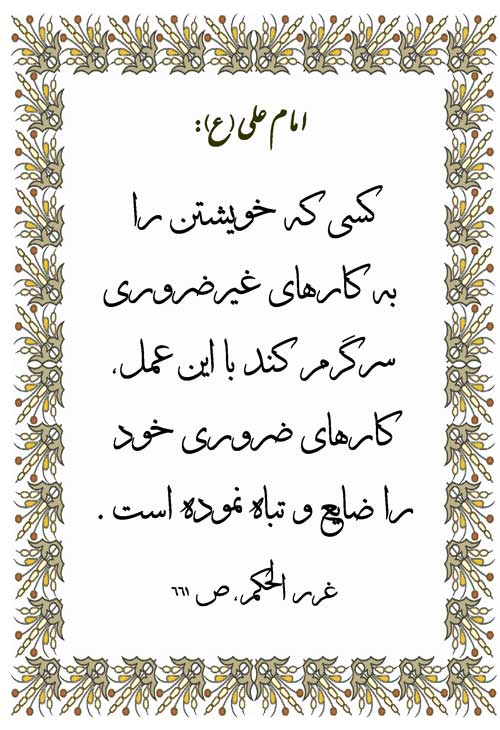 امام علی (ع):
کسی که خویشتن را
به کارهای غیرضروری
سرگرم کند با این عمل،
کارهای ضروری خود
را ضایع و تباه نموده است .
غرر الحکم، ص ٦٦١